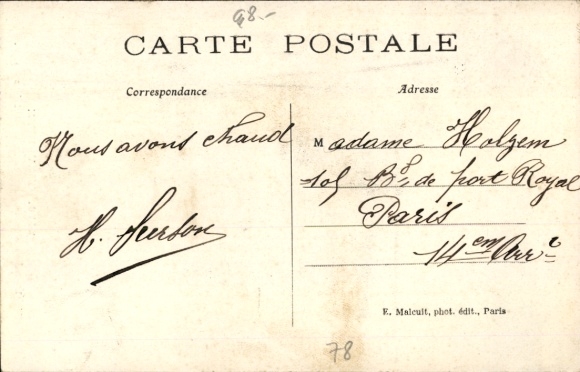 98.-
CARTE POSTALE
Correspondance
Adresse
Nous avons chaud
Madame Holzem
105 Bd. de port Royal
Paris
14em Arrt
E. Malcuit, phot. édit., Paris
78